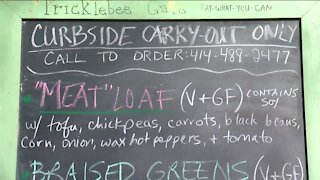 Tricklebee Cafe PAY-WHAT-YOU-CAN
CURBSIDE CARRY-OUT ONLY
CALL TO ORDER: 414-488-2477
"MEAT" LOAF (V+GF) CONTAINS SOY
w/ tofu, chickpeas, carrots, black beans,
corn, onion, wax hot peppers, + tomato
BRAISED GREENS (V+GF)